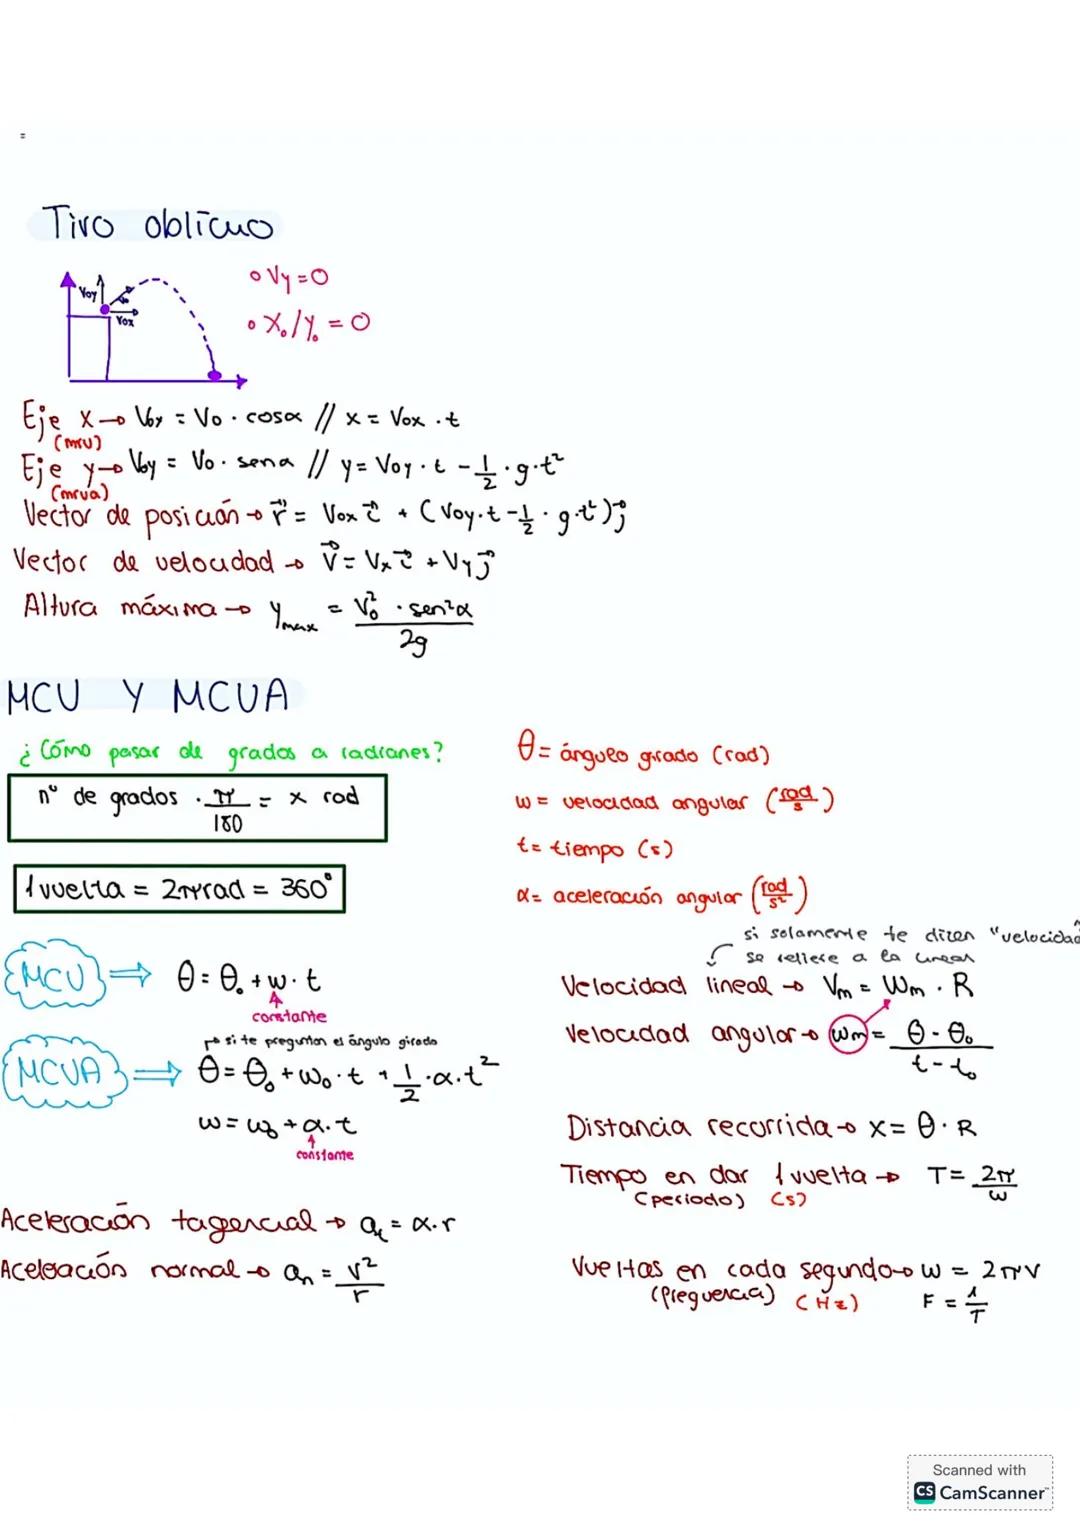 Tiro oblicuo
Voy
Vo
Vox
o Vy = 0
o X₀/Y₀ = 0
Eje x → Vox = Vo · cosα // x = Vox · t
(mru)
Eje y → Voy = Vo · senα // y = Voy · t - 1/2 · g · t²
(mrua)
Vector de posición → r⃗ = Vox i⃗ + (Voy·t - 1/2 · g·t²) j⃗
Vector de velocidad → V⃗ = Vx i⃗ + Vy j⃗
Altura máxima → Ymax = V₀² · sen²α / 2g
MCU Y MCUA
¿Cómo pasar de grados a radianes?
nº de grados · π/180 = x rad
1 vuelta = 2π rad = 360°
θ = ángulo girado (rad)
w = velocidad angular (rad/s)
t = tiempo (s)
α = aceleración angular (rad/s²)
MCU ⇒ θ = θ₀ + w · t
constante
si te preguntan el ángulo girado
MCUA ⇒ θ = θ₀ + w₀ · t + 1/2 · α · t²
w = w₀ + α · t
constante
si solamente te dicen "velocidad"
se refiere a la lineal
Velocidad lineal → Vm = Wm · R
Velocidad angular → Wm = θ - θ₀ / t - t₀
Distancia recorrida → x = θ · R
Tiempo en dar 1 vuelta → T = 2π/w
(periodo) (s)
Aceleración tagencial → at = α · r
Aceleación normal → an = v²/r
Vueltas en cada segundo → w = 2πν
(freguencia) (Hz) F = 1/T
Scanned with
CS CamScanner™